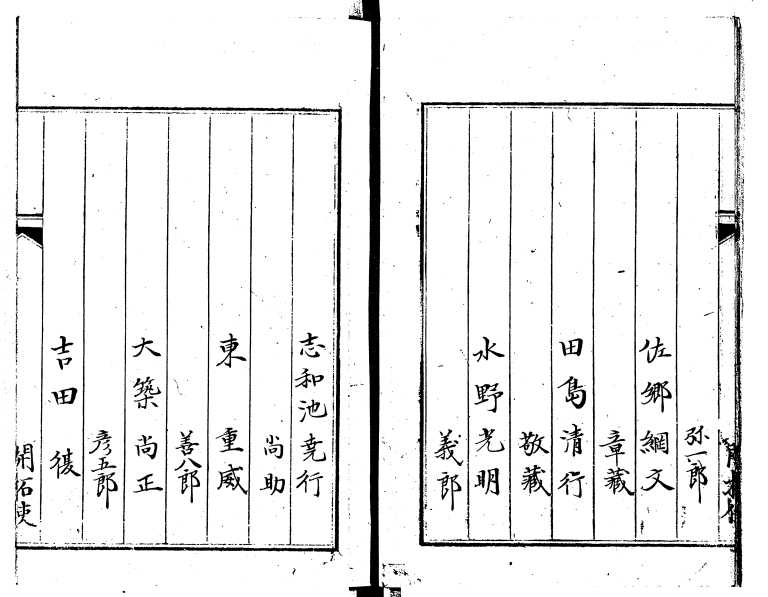 弥一郎
佐郷網文
章蔵
田島清行
敬蔵
水野光明
義郎
志和池尭行
尚助
東重威
善八郎
大築尚正
彦五郎
吉田復
開拓使